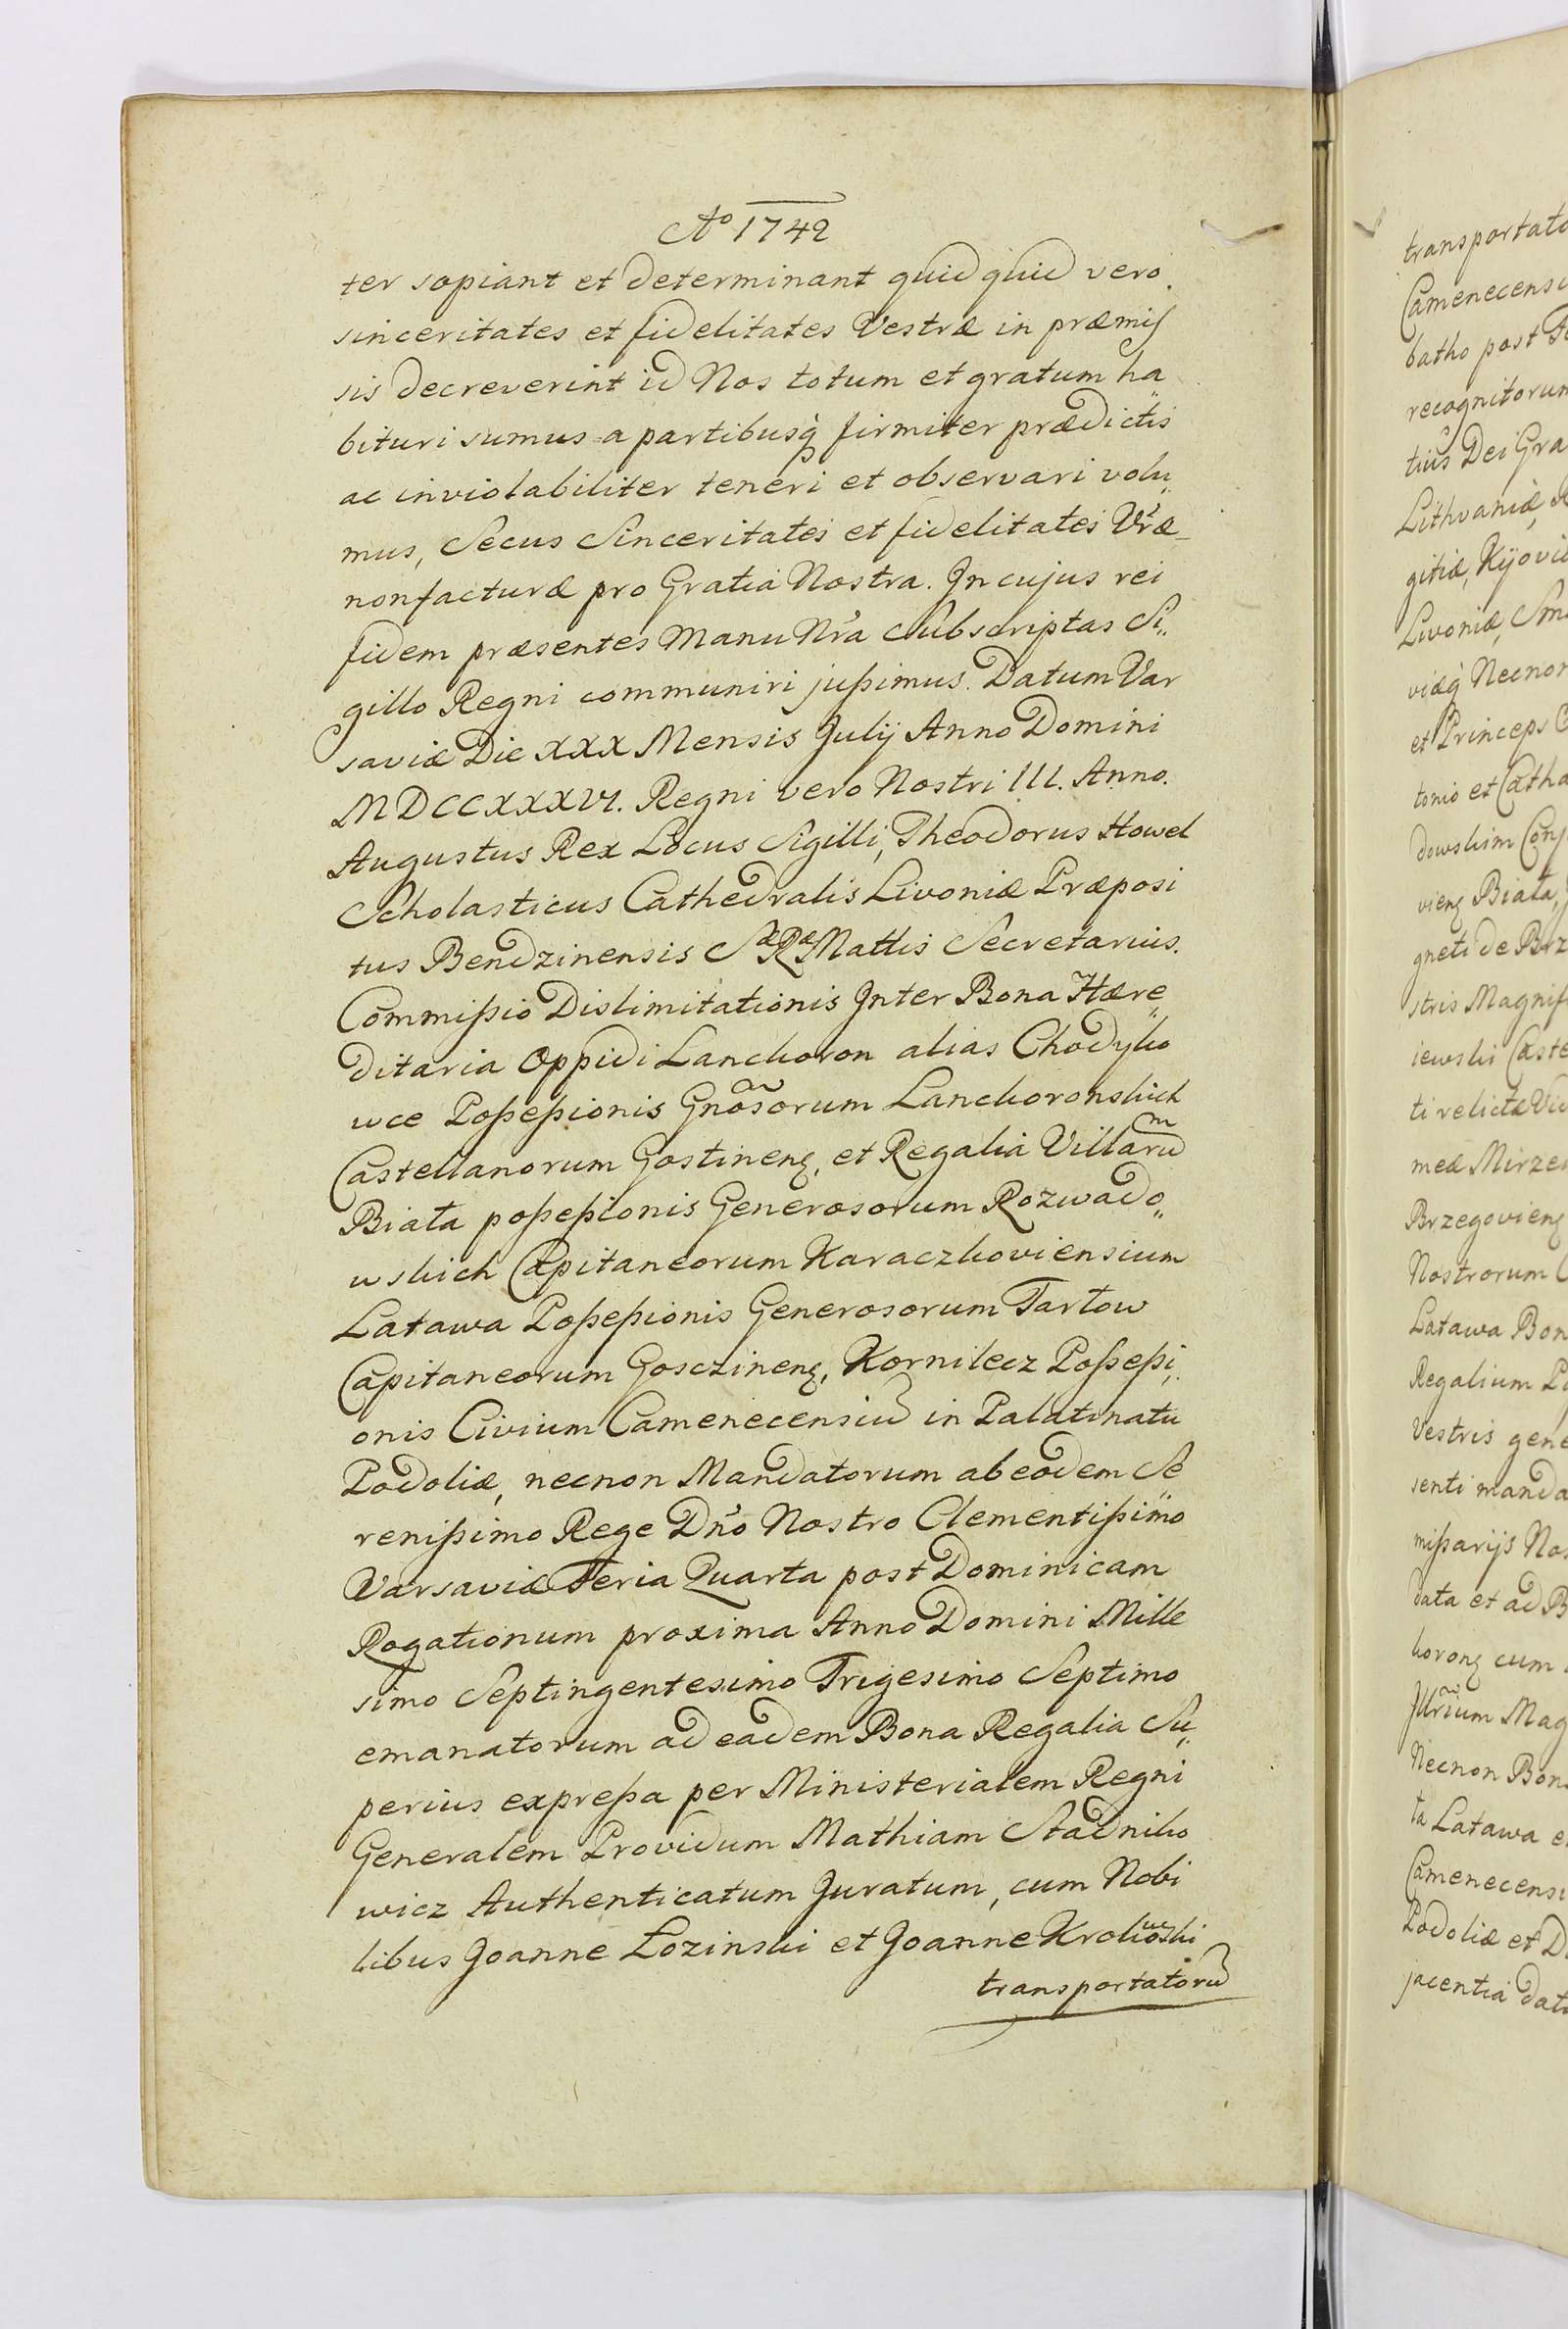 Aº 1742
ter sopiant et determinant quid quid vero
sinceritates et fidelitates Vestræ in præmis
sis decreverint id Nos totum et gratum ha
bituri sumus a partibusq̀ firmiter prædictis
ac inviolabiliter teneri et observari volu„
mus, Secus Sinceritates et fidelitates Vræ
nonfacturæ pro Gratia Nostra. In cujus rei
fidem præsentes Manu Nra Subscriptas Si„
gillo Regni communiri jußimus. Datum Var
saviæ Die XXX Mensis Julÿ Anno Domini
MDCCXXXVI. Regni vero Nostri III. Anno.
Augustus Rex Locus Sigilli, Theodorus Howel
Scholasticus Cathedralis Livoniæ Præposi
tus Bendzinensis SæRæMattis Secretarius.
Commißio Dislimitationis Inter Bona Hære„
ditaria Oppidi Lanckoron alias Chodyko
wce Poßeßionis Gnosorum Lanckoronskich
Castellanorum Gostineng, et Regalia Villaru
Biała poßeßionis Generosorum Rozwado„
wskich Capitaneorum Karaczkoviensium
Latawa Poßeßionis Generosorum Tarłow
Capitaneorum Gosczineng, Kornilecz Poßeßi„
onis Civium Camenecensiu in Palatinatu
Podoliæ, necnon Mandatorum ab eodem Se
renißimo Rege Dno Nostro Clementißimo
Varsaviæ Feria Quarta post Dominicam
Rogationum proxima Anno Domini Mille
simo Septingentesimo Trigesimo Septimo
emanatorum ad eadem Bona Regalia Su„
perius expreßa per Ministerialem Regni
Generalem Providum Mathiam Stadniko
wicz Authenticatum Juratum, cum Nobi
libus Joanne Łozinski et Joanne Krolikowski
transportatoru
transportato
Camenecensi
batho post Fe
recognitorum
tius Dei Gra
Lithvaniæ,
gitiæ, Kÿovi
Livoniæ, Smo
viæq̀ Necnon
et Princeps
tonio et Catha
dowskim Conj
vieng Biała,
gneti de Brz
stris Magnif
iewski Caste
ti relictæ Vid
meæ Mirze
Brzegovieng
Nostrorum
Latawa Bon
Regalium
Vestris gene
senti manda
mißarijs Nos
data et ad B
korong cum
Illrium Mag
Necnon Bon
ta Latawa e
Camenecensi
Podoliæ et D
jacentia dat